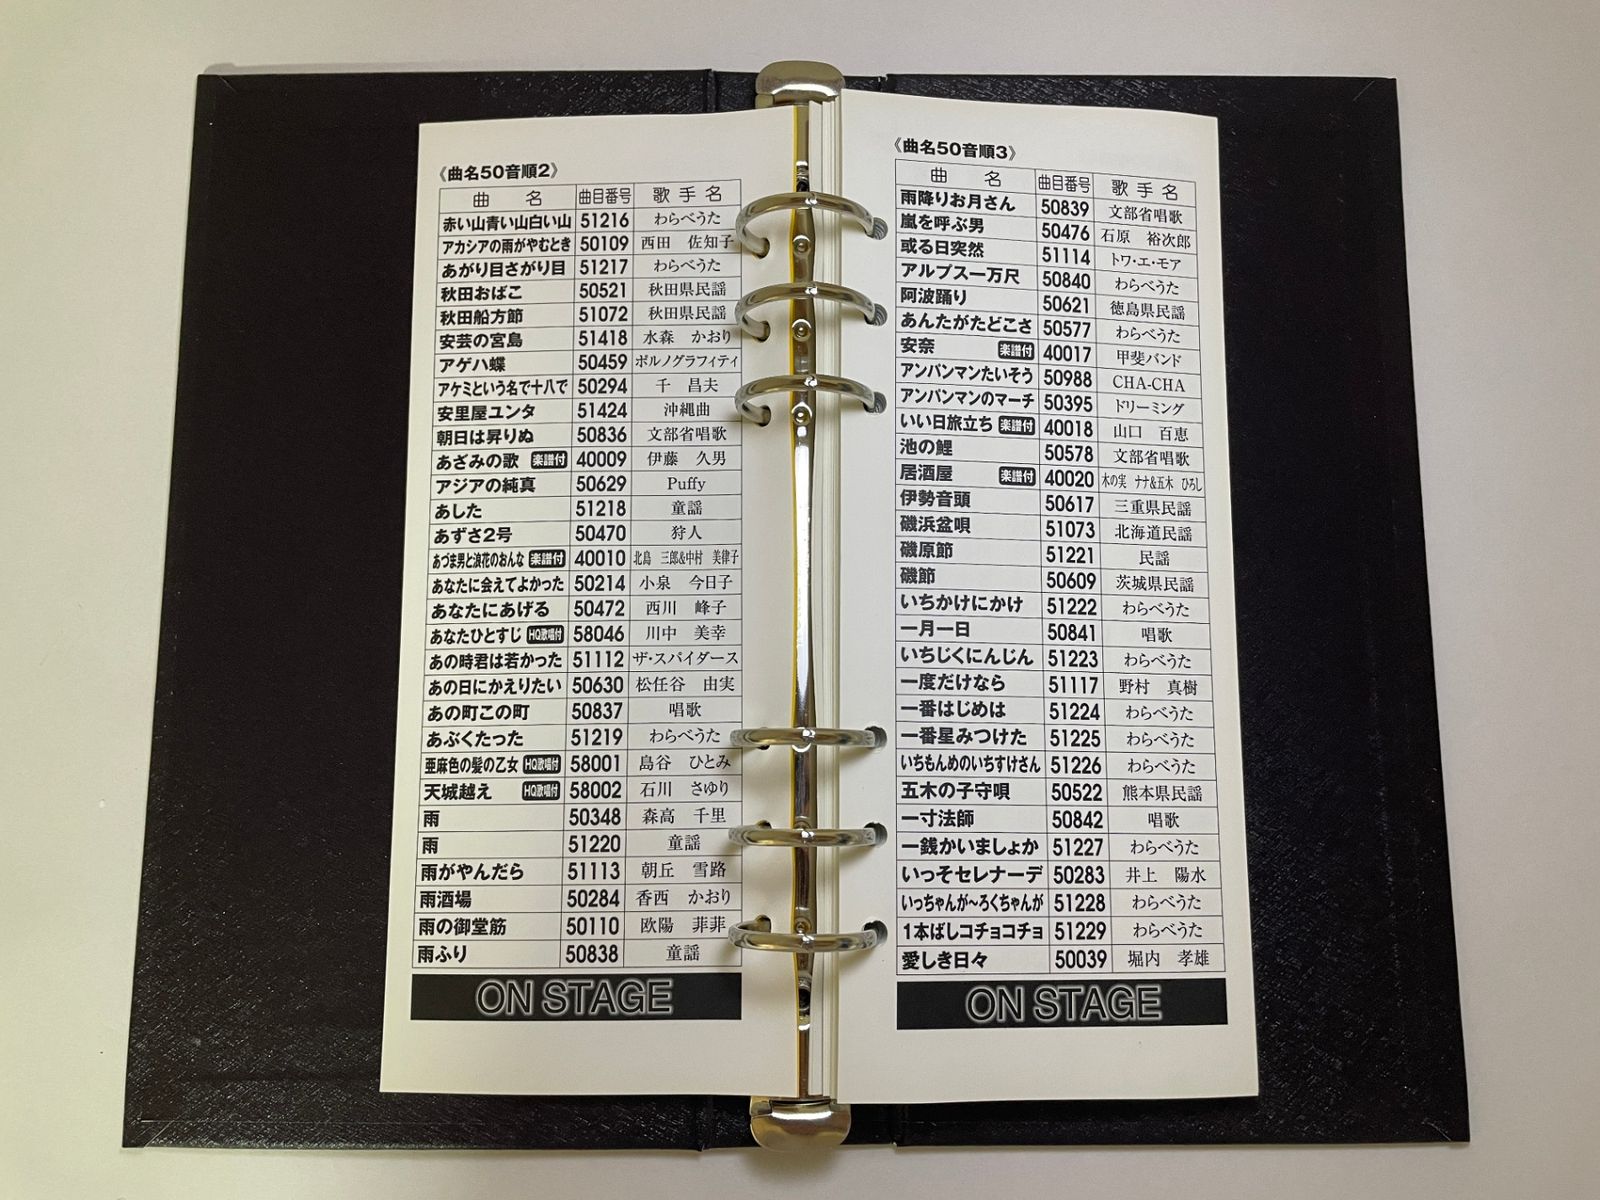 《曲名50音順2》
曲　名 曲目番号 歌手名
赤い山青い山白い山 51216 わらべうた
アカシアの雨がやむとき 50109 西田　佐知子
あがり目さがり目 51217 わらべうた
秋田おばこ 50521 秋田県民謡
秋田船方節 51072 秋田県民謡
安芸の宮島 51418 水森　かおり
アゲハ蝶 50459 ポルノグラフィティ
アケミという名で十八で 50294 千　昌夫
安里屋ユンタ 51424 沖縄曲
朝日は昇りぬ 50836 文部省唱歌
あざみの歌 楽譜付 40009 伊藤　久男
アジアの純真 50629 Puffy
あした 51218 童謡
あずさ2号 50470 狩人
あづま男と浪花のおんな 楽譜付 40010 北島　三郎&中村　美律子
あなたに会えてよかった 50214 小泉　今日子
あなたにあげる 50472 西川　峰子
あなたひとすじ HQ歌唱付 58046 川中　美幸
あの時君は若かった 51112 ザ・スパイダース
あの日にかえりたい 50630 松任谷　由実
あの町この町 50837 唱歌
あぶくたった 51219 わらべうた
亜麻色の髪の乙女 HQ歌唱付 58001 島谷　ひとみ
天城越え HQ歌唱付 58002 石川　さゆり
雨 50348 森高　千里
雨 51220 童謡
雨がやんだら 51113 朝丘　雪路
雨酒場 50284 香西　かおり
雨の御堂筋 50110 欧陽　菲菲
雨ふり 50838 童謡
ON STAGE
《曲名50音順3》
曲　名 曲目番号 歌手名
雨降りお月さん 50839 文部省唱歌
嵐を呼ぶ男 50476 石原　裕次郎
或る日突然 51114 トワ・エ・モア
アルプス一万尺 50840 わらべうた
阿波踊り 50621 徳島県民謡
あんたがたどこさ 50577 わらべうた
安奈 楽譜付 40017 甲斐バンド
アンパンマンたいそう 50988 CHA-CHA
アンパンマンのマーチ 50395 ドリーミング
いい日旅立ち 楽譜付 40018 山口　百恵
池の鯉 50578 文部省唱歌
居酒屋 楽譜付 40020 木の実　ナナ&五木　ひろし
伊勢音頭 50617 三重県民謡
磯浜盆唄 51073 北海道民謡
磯原節 51221 民謡
磯節 50609 茨城県民謡
いちかけにかけ 51222 わらべうた
一月一日 50841 唱歌
いちじくにんじん 51223 わらべうた
一度だけなら 51117 野村　真樹
一番はじめは 51224 わらべうた
一番星みつけた 51225 わらべうた
いちもんめのいちすけさん 51226 わらべうた
五木の子守唄 50522 熊本県民謡
一寸法師 50842 唱歌
一銭かいましょか 51227 わらべうた
いっそセレナーデ 50283 井上　陽水
いっちゃんが～ろくちゃんが 51228 わらべうた
1本ばしコチョコチョ 51229 わらべうた
愛しき日々 50039 堀内　孝雄
ON STAGE